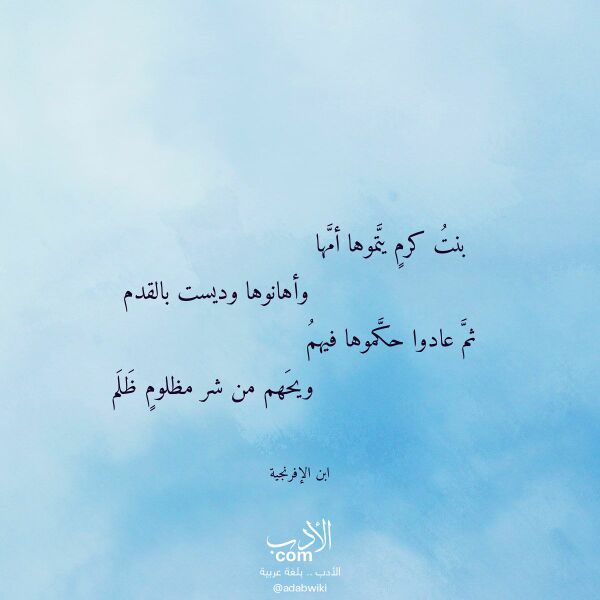 بنتُ كرمٍ يتَّموها أمَّها
وأهانوها وديست بالقدم
ثمَّ عادوا حكَّموها فيهمُ
ويحَهم من شر مظلومٍ ظَلَم
ابن الإفرنجية
الأدب
com
الأدب .. بلغة عربية
@adabwiki